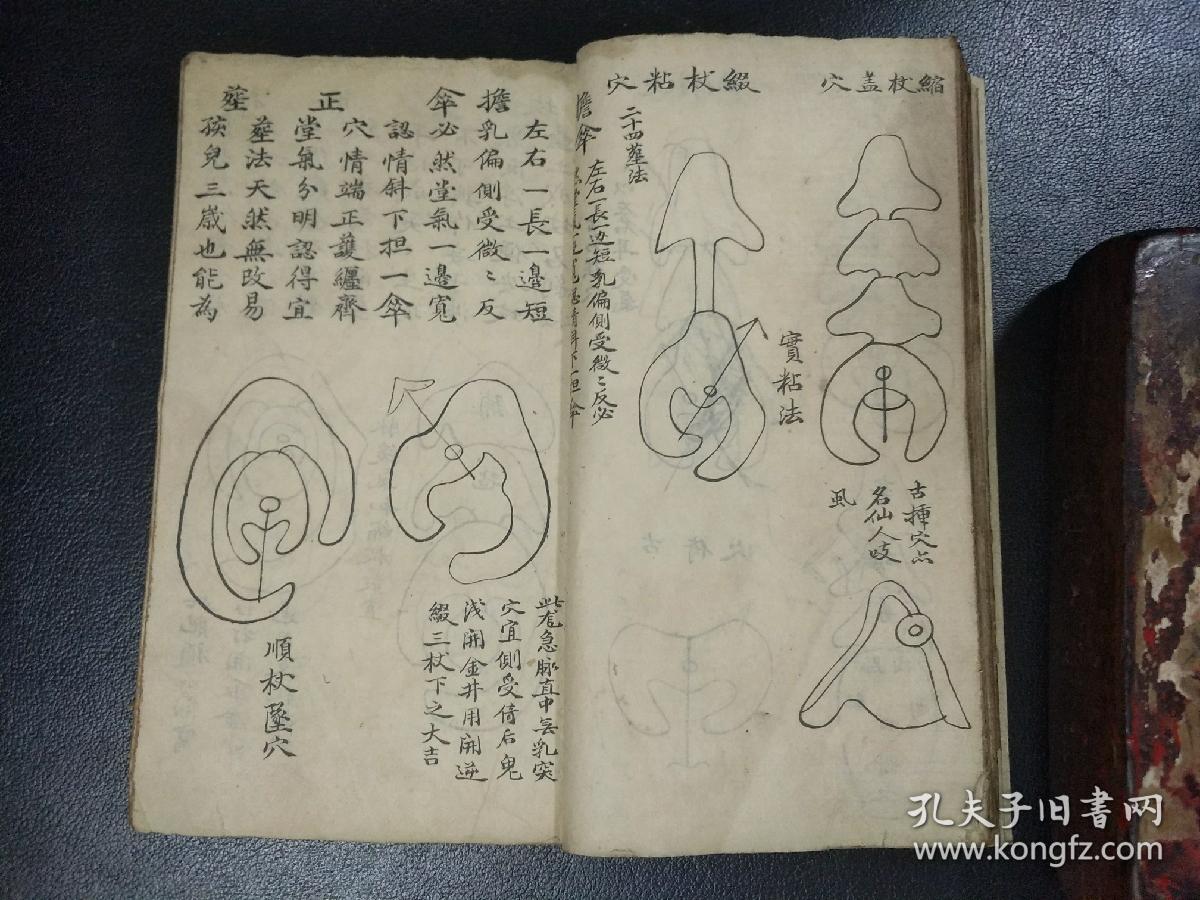 縮杖盖穴
古揷穴点
名仙人岐
風
綴杖粘穴
實粘法
二十四塟法
左右一長一边短乳偏側受微〻反必
擔傘
擔傘
左右一長一邊短
乳偏側受微〻反
必然堂氣一邊寬
認情斜下担一傘
正塟
穴情端正護纒齊
堂氣分明認得宜
塟法天然無改易
孩兒三歲也能為
急脉直中無乳突
穴宜側受倚后鬼
浅開金井用開逆
綴三杖下之大吉
順杖墜穴
孔夫子旧書网
www.kongfz.com